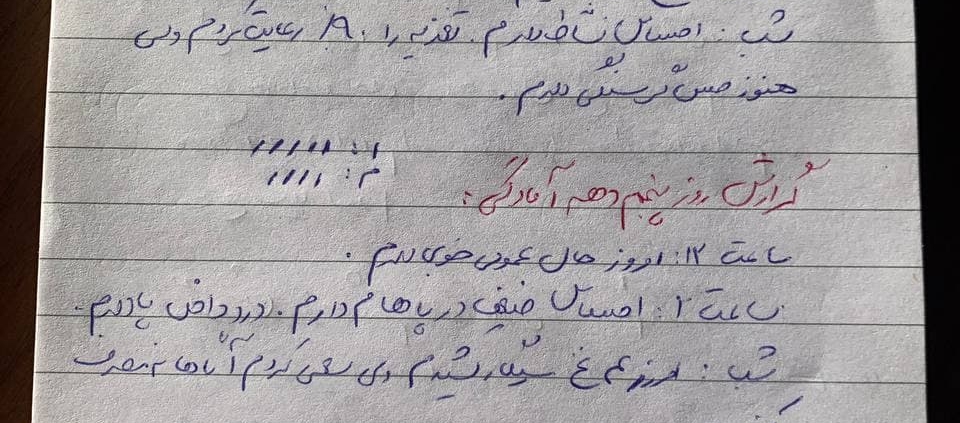 شب: احساس نشاط دارم. تغذیه را ۹۸٠ رعایت کردم ولی
هنوز حس گرسنگی دارم.
ا: ااااا
م: اااا
گزارش روز پنجم دهه آمادگی:
ساعت ۱۲: امروز حال عمومی خوبی دارم.
ساعت ۲: احساس ضعیف در پاهام دارم. درد داخل پا دارم.
شب: امروز هم سیگار کشیدم ولی سعی کردم آبادها